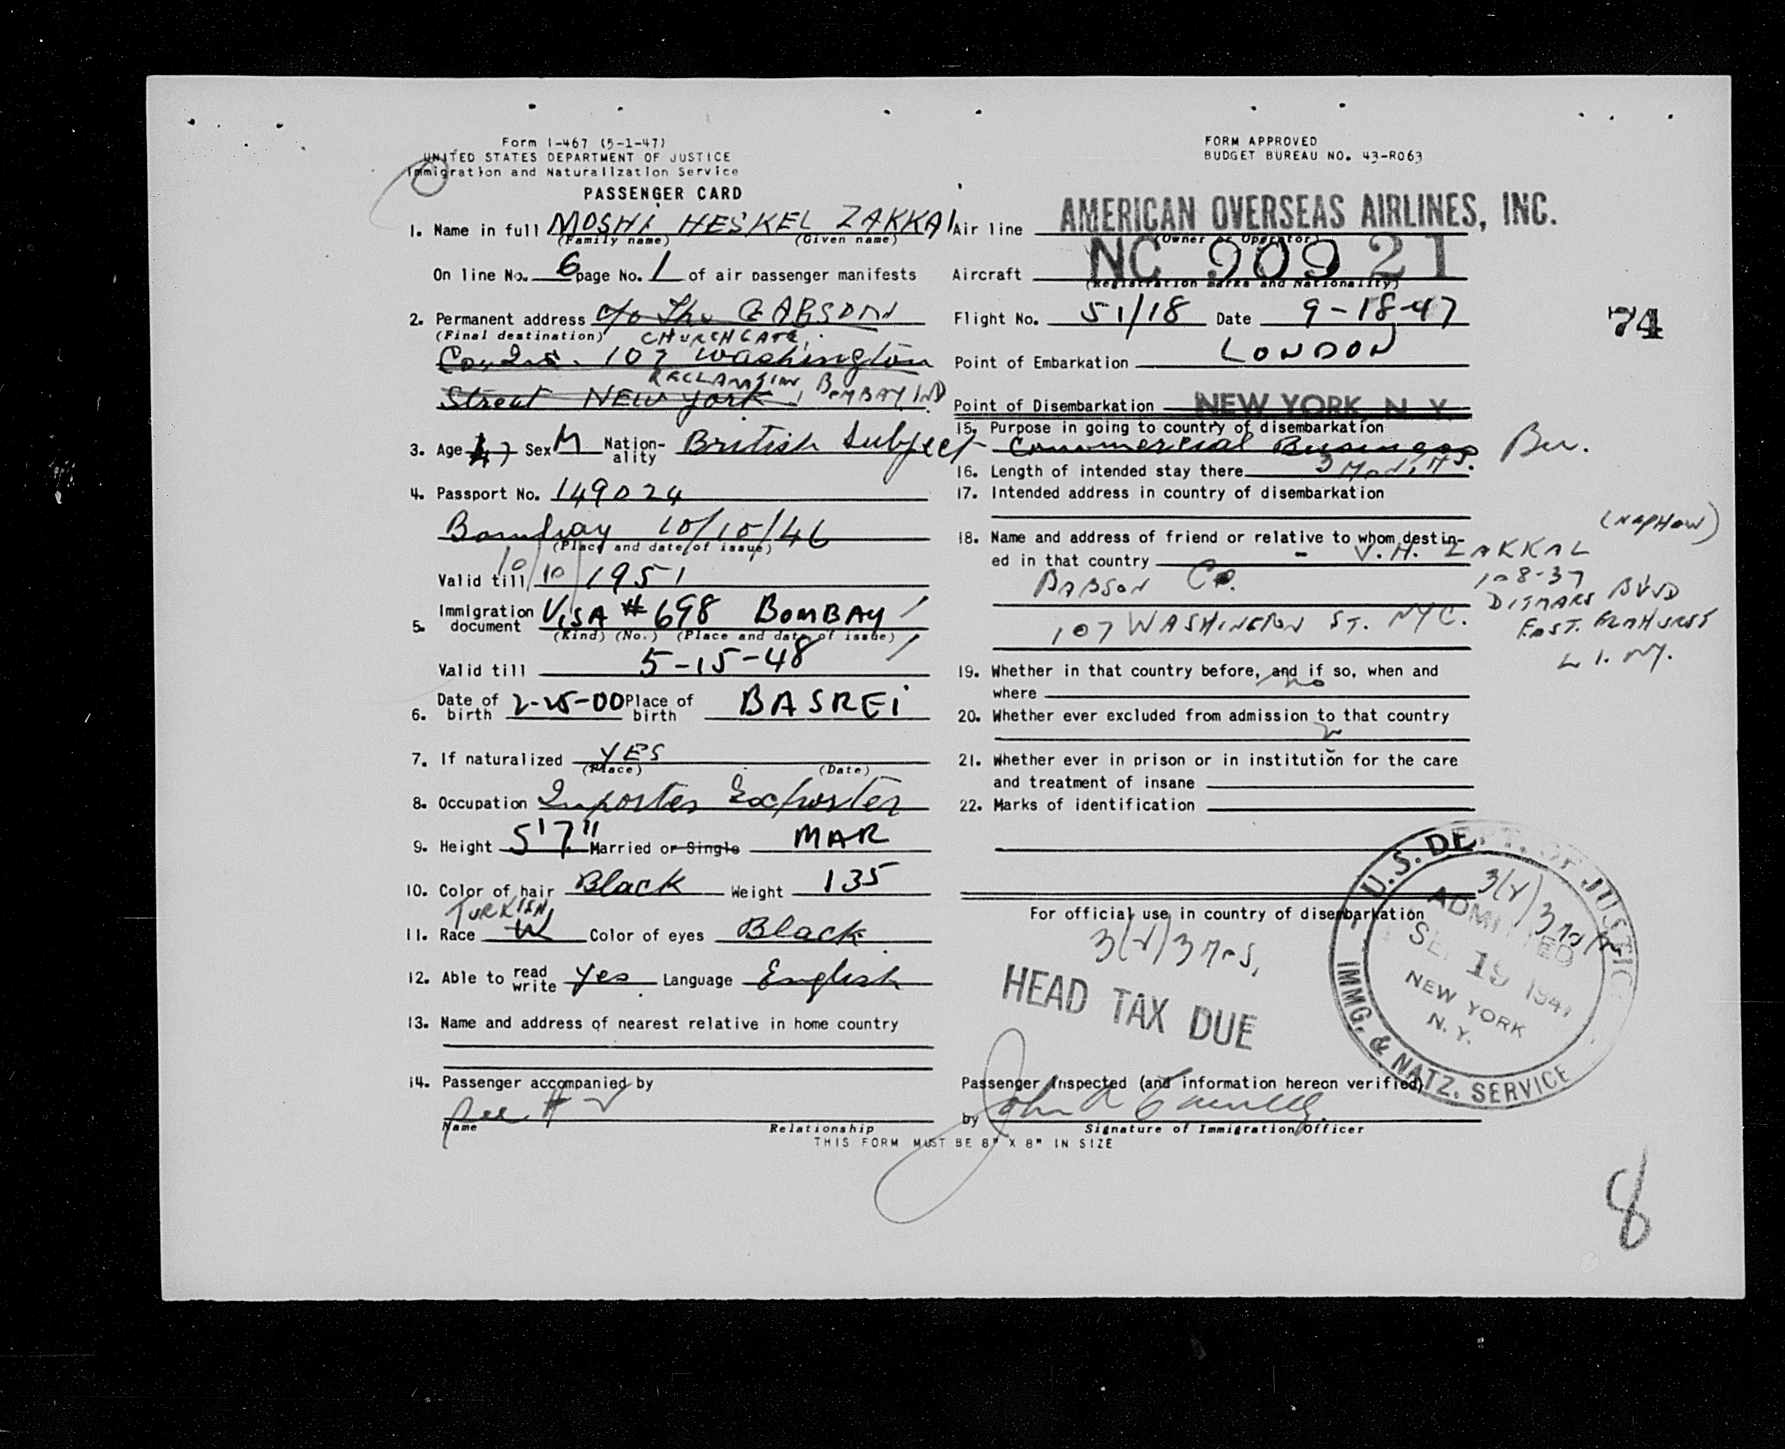 Form I-467 (5-1-47)
UNITED STATES DEPARTMENT OF JUSTICE
Immigration and Naturalization Service
PASSENGER CARD
FORM APPROVED
BUDGET BUREAU NO. 43-R063
1. Name in full MOSHI HESKEL ZAKKAI
(Family name) (Given name)
On line No. 6 page No. 1 of air passenger manifests
2. Permanent address c/o The BABSON
(Final destination) CHURCHGATE,
107 Washington
RECLAMATION, BOMBAY IND
Street NEW York
3. Age 47 Sex M Nation-ality British Subject
4. Passport No. 149024
Bombay 10/10/46
(Place and date of issue)
Valid till 10/10/1951
5. Immigration document VISA # 698 BOMBAY
(Kind) (No.) (Place and date of issue)
Valid till 5-15-48
6. Date of birth 2-25-00 Place of birth BASREI
7. If naturalized YES
(Place) (Date)
8. Occupation Importer Exporter
9. Height 5'7" Married or Single MAR
10. Color of hair Black Weight 135
TURKISH
11. Race W Color of eyes Black
12. Able to read write Yes Language English
13. Name and address of nearest relative in home country
14. Passenger accompanied by
see #
Name Relationship
THIS FORM MUST BE 8" X 8" IN SIZE
Air line AMERICAN OVERSEAS AIRLINES, INC.
(Owner or Operator)
Aircraft NC 90921
(Registration marks and Nationality)
Flight No. 51/18 Date 9-18-47
74
Point of Embarkation LONDON
Point of Disembarkation NEW YORK, N. Y.
15. Purpose in going to country of disembarkation
Commercial Business Bus.
16. Length of intended stay there 3 MONTHS.
17. Intended address in country of disembarkation
18. Name and address of friend or relative to whom destin-
ed in that country V. H. ZAKKAI (NEPHEW)
BABSON Co. 108-37
DITMARS BLVD
107 WASHINGTON ST. NYC. EAST ELMHURST
L. I. NY.
19. Whether in that country before, and if so, when and
where no
20. Whether ever excluded from admission to that country
21. Whether ever in prison or in institution for the care
and treatment of insane
22. Marks of identification
For official use in country of disembarkation
3(2) 3 mos.
HEAD TAX DUE
U.S. DEPT. OF JUSTICE
3(2) 3 mos
ADMITTED
SEP 19 1947
NEW YORK
N. Y.
IMMG. & NATZ. SERVICE
Passenger Inspected (and information hereon verified)
by John
Signature of Immigration Officer
8